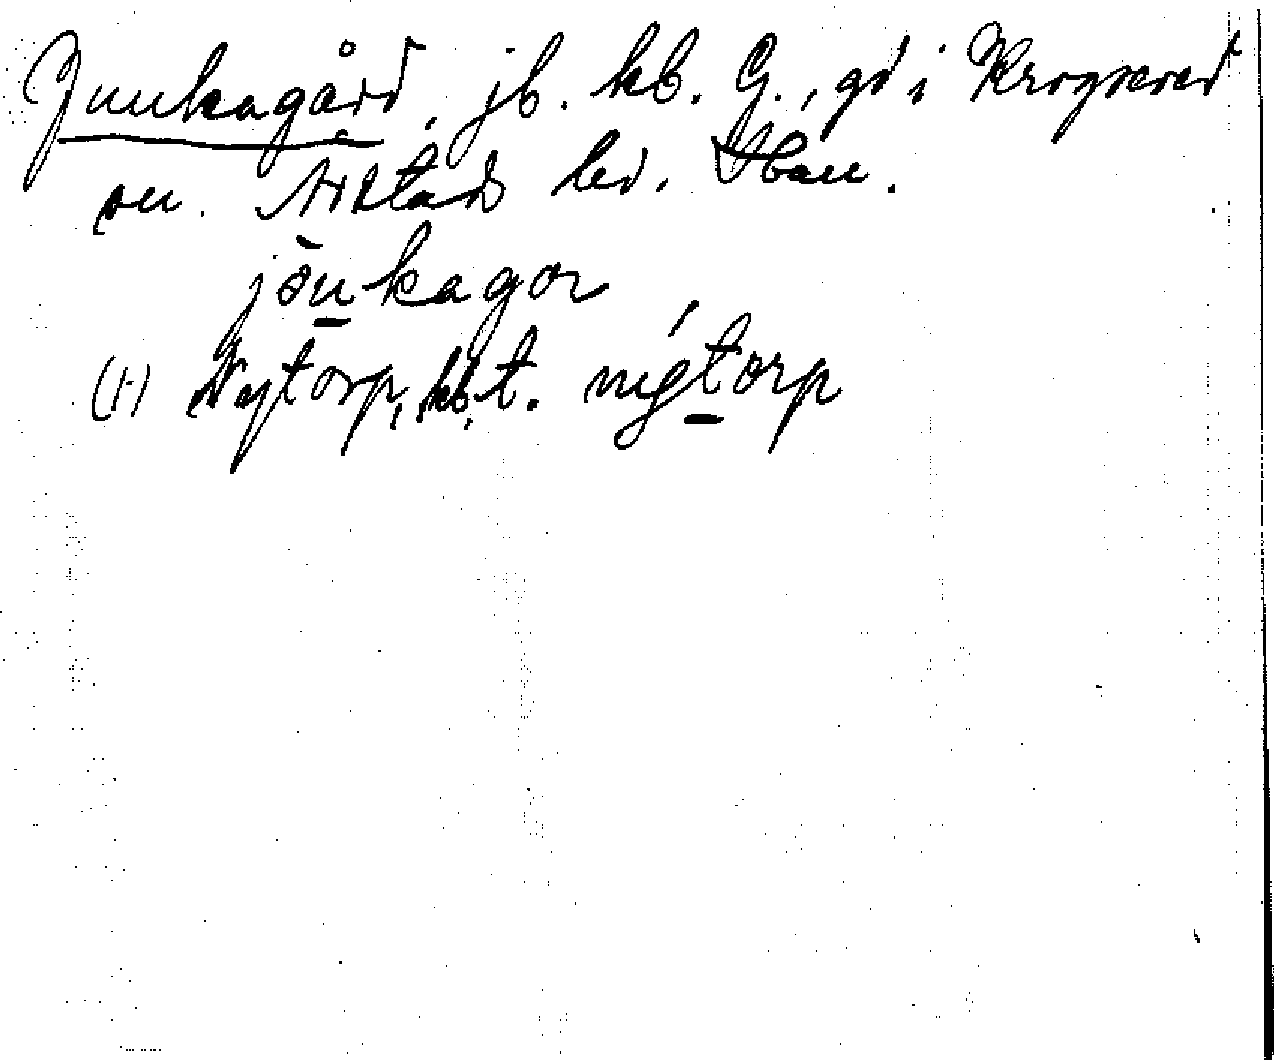 Junkagård, jb. kb. G., gd i Krogsered
sn. Årstads hd. Hall.
jönkagor
(1) Nytorp, kb, t. nýtorp